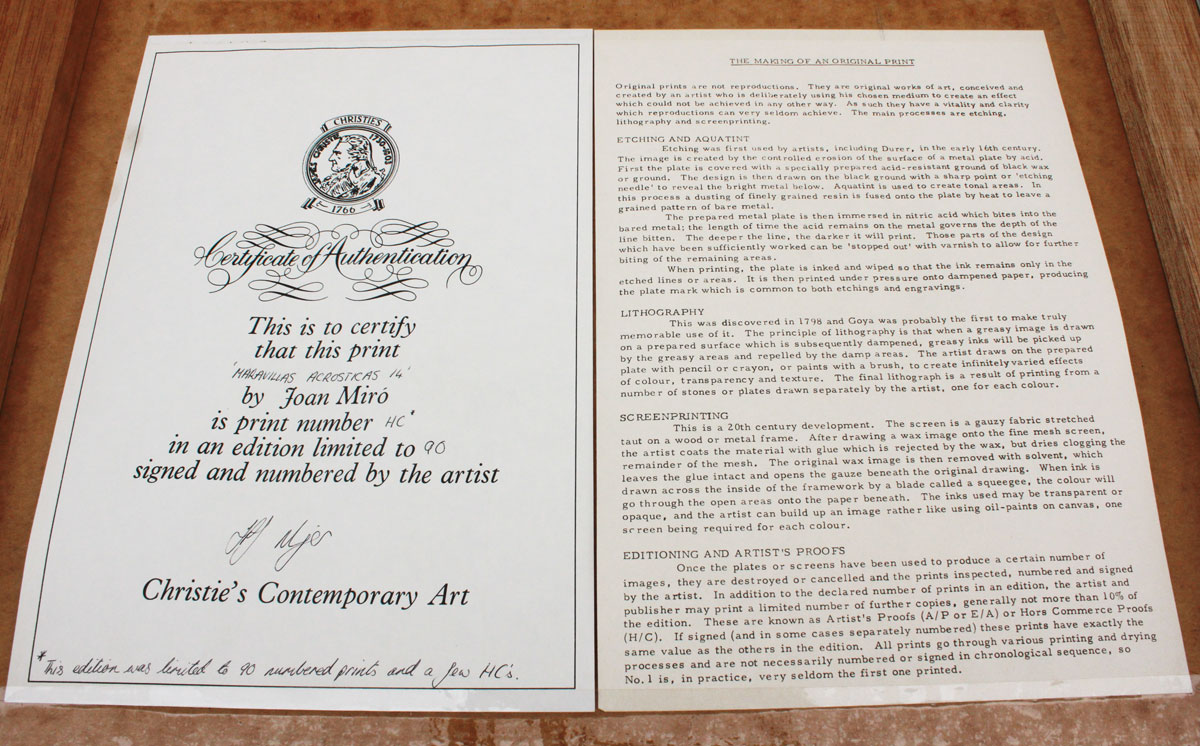 CHRISTIES
JAMES CHRISTIE 1730-1803
1766
Certificate of Authentication
This is to certify
that this print
'MARAVILLAS ACROSTICAS 14'
by Joan Miró
is print number HC*
in an edition limited to 90
signed and numbered by the artist
Christie's Contemporary Art
*This edition was limited to 90 numbered prints and a few HC's.
THE MAKING OF AN ORIGINAL PRINT
Original prints are not reproductions. They are original works of art, conceived and
created by an artist who is deliberately using his chosen medium to create an effect
which could not be achieved in any other way. As such they have a vitality and clarity
which reproductions can very seldom achieve. The main processes are etching,
lithography and screenprinting.
ETCHING AND AQUATINT
Etching was first used by artists, including Durer, in the early 16th century.
The image is created by the controlled erosion of the surface of a metal plate by acid.
First the plate is covered with a specially prepared acid-resistant ground of black wax
or ground. The design is then drawn on the black ground with a sharp point or 'etching
needle' to reveal the bright metal below. Aquatint is used to create tonal areas. In
this process a dusting of finely grained resin is fused onto the plate by heat to leave a
grained pattern of bare metal.
The prepared metal plate is then immersed in nitric acid which bites into the
bared metal; the length of time the acid remains on the metal governs the depth of the
line bitten. The deeper the line, the darker it will print. Those parts of the design
which have been sufficiently worked can be 'stopped out' with varnish to allow for further
biting of the remaining areas.
When printing, the plate is inked and wiped so that the ink remains only in the
etched lines or areas. It is then printed under pressure onto dampened paper, producing
the plate mark which is common to both etchings and engravings.
LITHOGRAPHY
This was discovered in 1798 and Goya was probably the first to make truly
memorable use of it. The principle of lithography is that when a greasy image is drawn
on a prepared surface which is subsequently dampened, greasy inks will be picked up
by the greasy areas and repelled by the damp areas. The artist draws on the prepared
plate with pencil or crayon, or paints with a brush, to create infinitely varied effects
of colour, transparency and texture. The final lithograph is a result of printing from a
number of stones or plates drawn separately by the artist, one for each colour.
SCREENPRINTING
This is a 20th century development. The screen is a gauzy fabric stretched
taut on a wood or metal frame. After drawing a wax image onto the fine mesh screen,
the artist coats the material with glue which is rejected by the wax, but dries clogging the
remainder of the mesh. The original wax image is then removed with solvent, which
leaves the glue intact and opens the gauze beneath the original drawing. When ink is
drawn across the inside of the framework by a blade called a squeegee, the colour will
go through the open areas onto the paper beneath. The inks used may be transparent or
opaque, and the artist can build up an image rather like using oil-paints on canvas, one
screen being required for each colour.
EDITIONING AND ARTIST'S PROOFS
Once the plates or screens have been used to produce a certain number of
images, they are destroyed or cancelled and the prints inspected, numbered and signed
by the artist. In addition to the declared number of prints in an edition, the artist and
publisher may print a limited number of further copies, generally not more than 10% of
the edition. These are known as Artist's Proofs (A/P or E/A) or Hors Commerce Proofs
(H/C). If signed (and in some cases separately numbered) these prints have exactly the
same value as the others in the edition. All prints go through various printing and drying
processes and are not necessarily numbered or signed in chronological sequence, so
No.1 is, in practice, very seldom the first one printed.